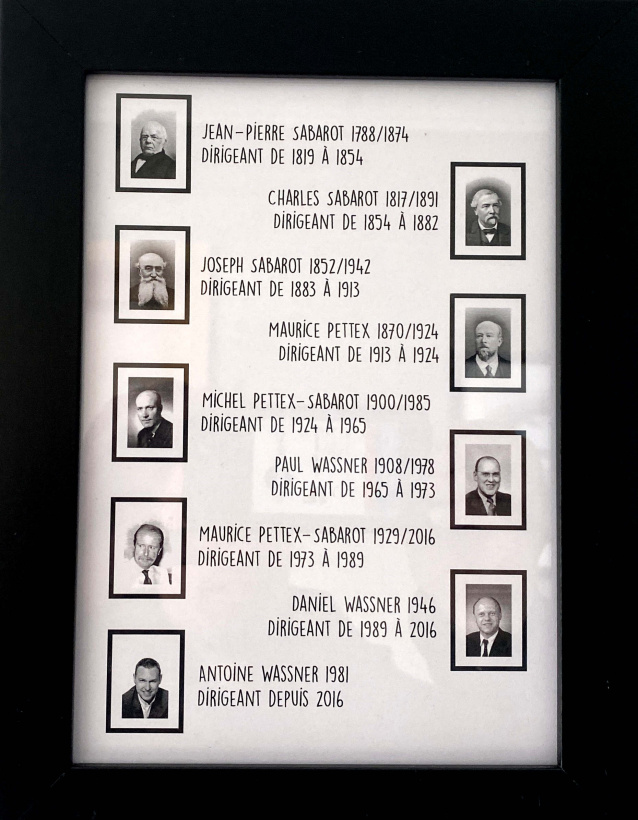 JEAN-PIERRE SABAROT 1788/1874
DIRIGEANT DE 1819 À 1854
CHARLES SABAROT 1817/1891
DIRIGEANT DE 1854 À 1882
JOSEPH SABAROT 1852/1942
DIRIGEANT DE 1883 À 1913
MAURICE PETTEX 1870/1924
DIRIGEANT DE 1913 À 1924
MICHEL PETTEX-SABAROT 1900/1985
DIRIGEANT DE 1924 À 1965
PAUL WASSNER 1908/1978
DIRIGEANT DE 1965 À 1973
MAURICE PETTEX-SABAROT 1929/2016
DIRIGEANT DE 1973 À 1989
DANIEL WASSNER 1946
DIRIGEANT DE 1989 À 2016
ANTOINE WASSNER 1981
DIRIGEANT DEPUIS 2016